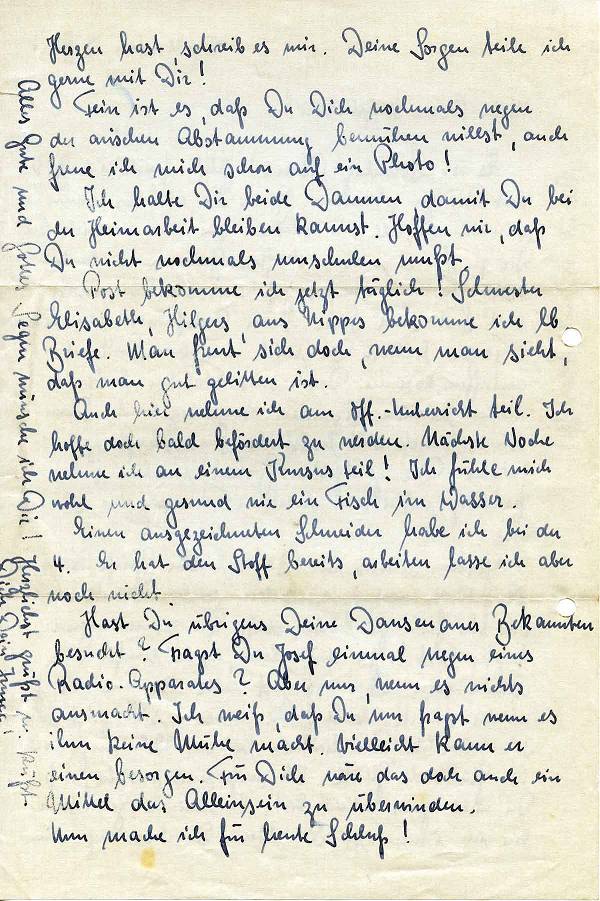 Herzen hast, schreib es mir. Deine Sorgen teile ich
gerne mit Dir!
Fein ist es, daß Du Dich nochmals wegen
der arischen Abstammung bemühen willst, auch
freue ich mich schon auf ein Photo!
Ich halte Dir beide Daumen, damit Du bei
der Heimarbeit bleiben kannst. Hoffen wir, daß
Du nicht nochmals umschulen mußt.
Post bekomme ich jetzt täglich! Schwester
Elisabeth, Hilgers, aus Nippes bekomme ich lb
Briefe. Man freut sich doch, wenn man sieht,
daß man gut gelitten ist.
Auch hier nehme ich am Off.-Unterricht teil. Ich
hoffe doch bald befördert zu werden. Nächste Woche
nehme ich an einem Kursus teil! Ich fühle mich
wohl und gesund wie ein Fisch im Wasser.
Einen ausgezeichneten Schneider habe ich bei der
4. Er hat den Stoff bereits, arbeiten lasse ich aber
noch nicht.
Hast Du übrigens Deine Bekannten
besucht? Fragst Du Josef einmal wegen eines
Radio-Apparates? Aber nur, wenn es nichts
ausmacht. Ich weiß, daß Du nur fragst wenn es
ihm keine Mühe macht. Vielleicht kann er
einen besorgen. Für Dich wäre das doch auch ein
Mittel das Alleinsein zu überwinden.
Nun mache ich für heute Schluß!
Alles Gute und Gottes Segen wünsche ich Dir!
Herzlichst grüßt u. küßt
Dich Dein